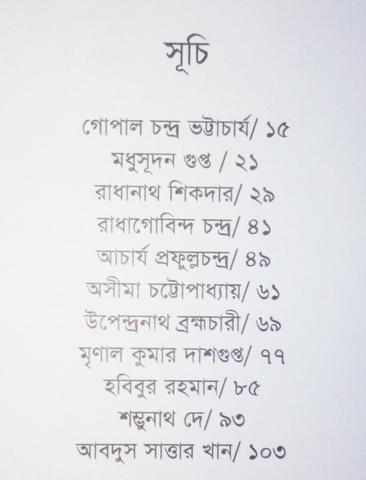 সূচি
গোপাল চন্দ্র ভট্টাচার্য/ ১৫
মধুসূদন গুপ্ত / ২১
রাধানাথ শিকদার/ ২৯
রাধাগোবিন্দ চন্দ্র/ ৪১
আচার্য প্রফুল্লচন্দ্র/ ৪৯
অসীমা চট্টোপাধ্যায়/ ৬১
উপেন্দ্রনাথ ব্রহ্মচারী/ ৬৯
মৃণাল কুমার দাশগুপ্ত/ ৭৭
হবিবুর রহমান/ ৮৫
শম্ভুনাথ দে/ ৯৩
আবদুস সাত্তার খান/ ১০৩